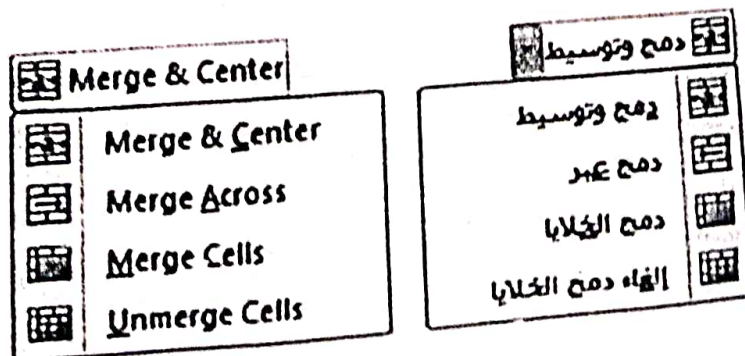 Merge & Center
Merge & Center
Merge Across
Merge Cells
Unmerge Cells
دمج وتوسيط
دمج وتوسيط
دمج عبر
دمج الخلايا
إلغاء دمج الخلايا